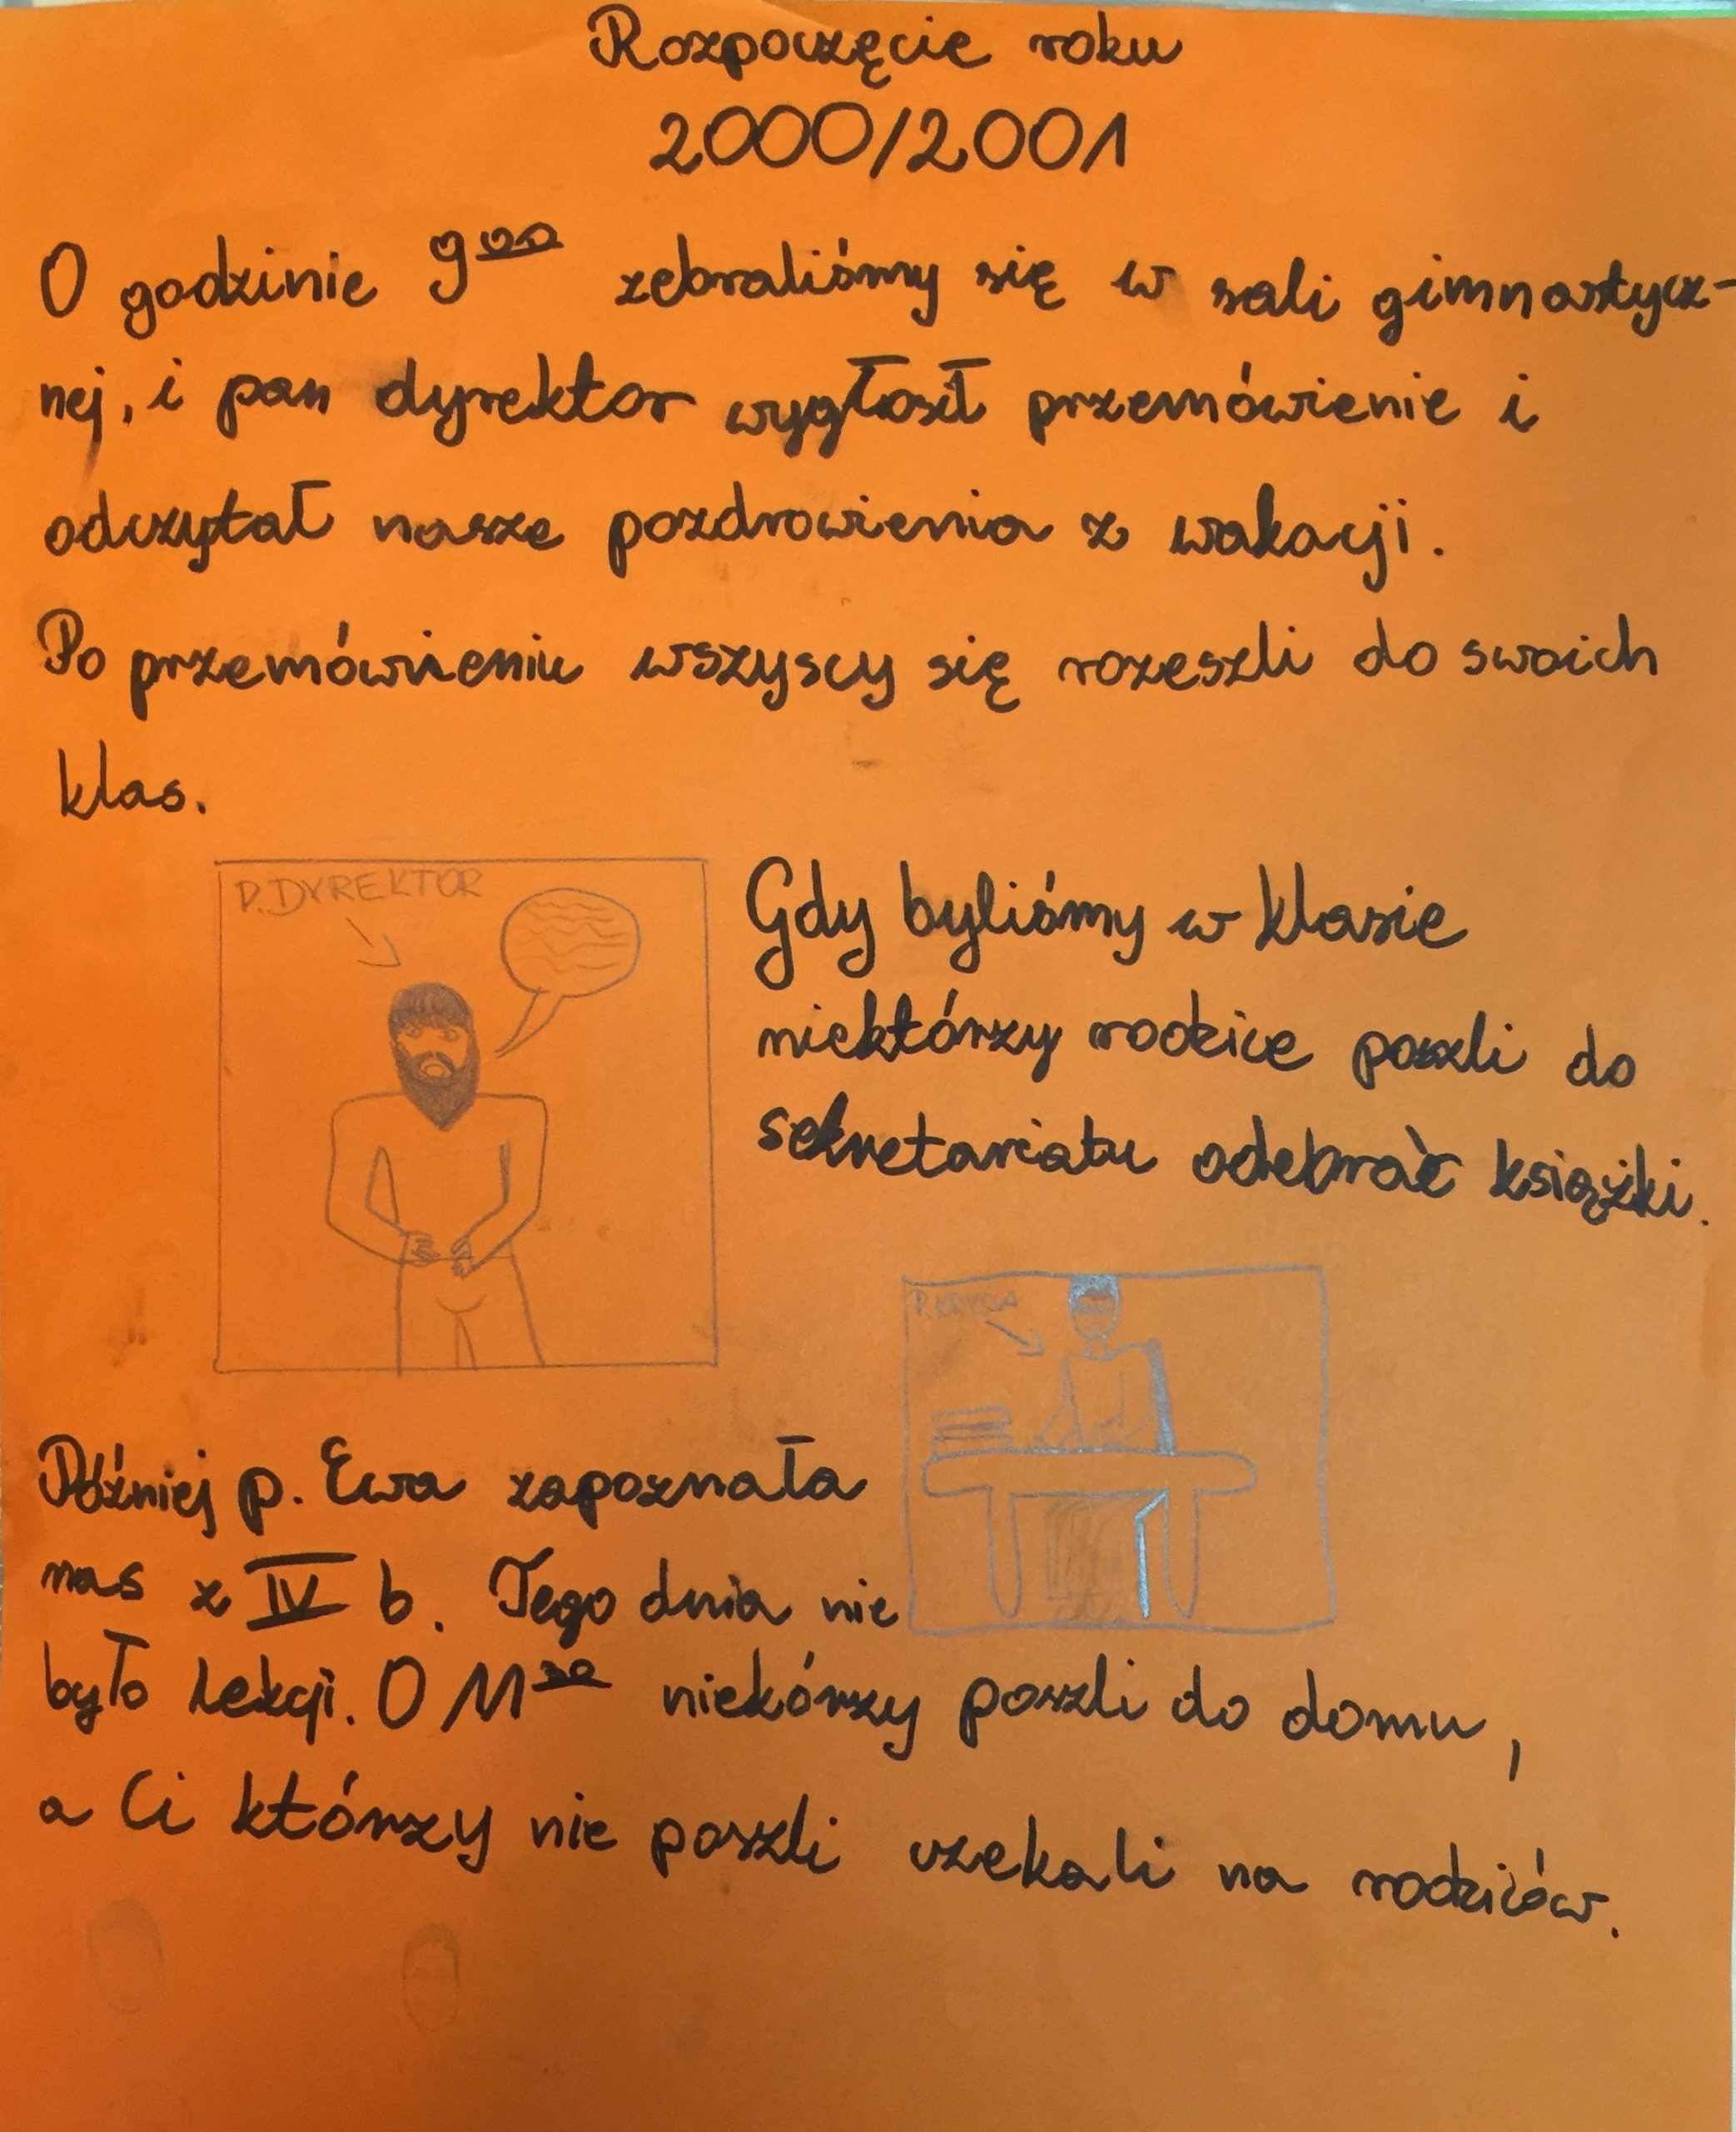 Rozpoczęcie roku
2000/2001
O godzinie 9⁰⁰ zebraliśmy się w sali gimnastycz-
nej, i pan dyrektor wygłosił przemówienie i
odczytał nasze pozdrowienia z wakacji.
Po przemówieniu wszyscy się rozeszli do swoich
klas.
P. DYREKTOR
Gdy byliśmy w klasie
niektórzy rodzice poszli do
sekretariatu odebrać książki.
P. KRYSIA
Później p. Ewa zapoznała
nas z IV b. Tego dnia nie
było lekcji. O 11³⁰ niekórzy poszli do domu,
a Ci którzy nie poszli czekali na rodziców.